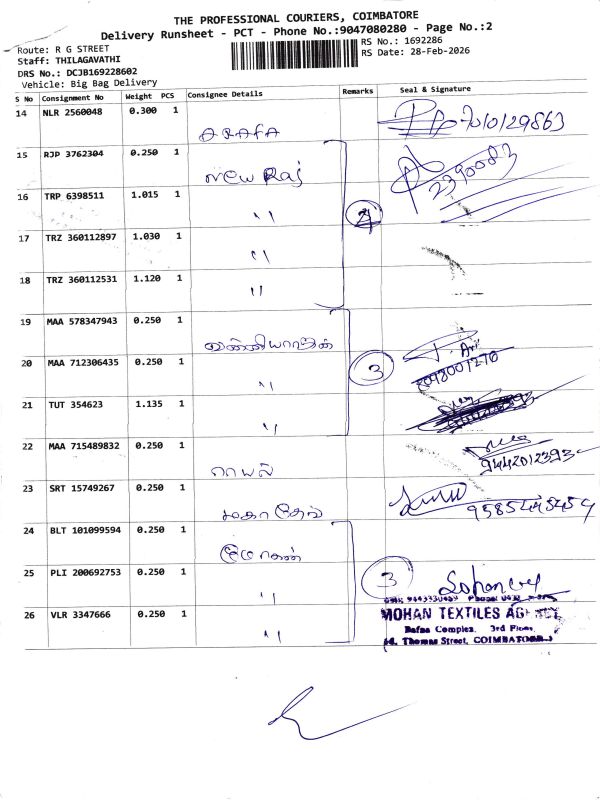 THE PROFESSIONAL COURIERS, COIMBATORE
Delivery Runsheet - PCT - Phone No.:9047080280 - Page No.:2
Route: R G STREET
RS No.: 1692286
Staff: THILAGAVATHI
RS Date: 28-Feb-2026
DRS No.: DCJB169228602
Vehicle: Big Bag Delivery
S No Consignment No Weight PCS Consignee Details Remarks Seal & Signature
14 NLR 2560048 0.300 1
ARAFA
7010129863
15 RJP 3762304 0.250 1
New Raj
2390083
16 TRP 6398511 1.015 1
"
4
17 TRZ 360112897 1.030 1
"
18 TRZ 360112531 1.120 1
"
19 MAA 578347943 0.250 1
20 MAA 712306435 0.250 1
"
3
21 TUT 354623 1.135 1
"
22 MAA 715489832 0.250 1
ராயல்
9442012393
23 SRT 15749267 0.250 1
மகாதேவ்
24 BLT 101099594 0.250 1
மோகன்
25 PLI 200692753 0.250 1
"
3
26 VLR 3347666 0.250 1
"
MOHAN TEXTILES
Bafna Complex, 3rd Floor,
Thomas Street, COIMBATORE